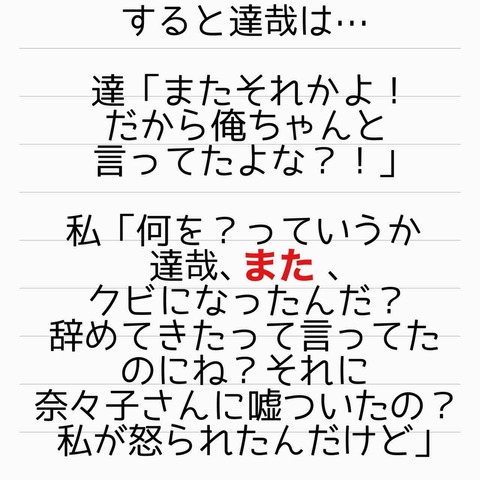 すると達哉は…
達「またそれかよ！
だから俺ちゃんと
言ってたよな？！」
私「何を？っていうか
達哉、また、
クビになったんだ？
辞めてきたって言ってた
のにね？それに
奈々子さんに嘘ついたの？
私が怒られたんだけど」